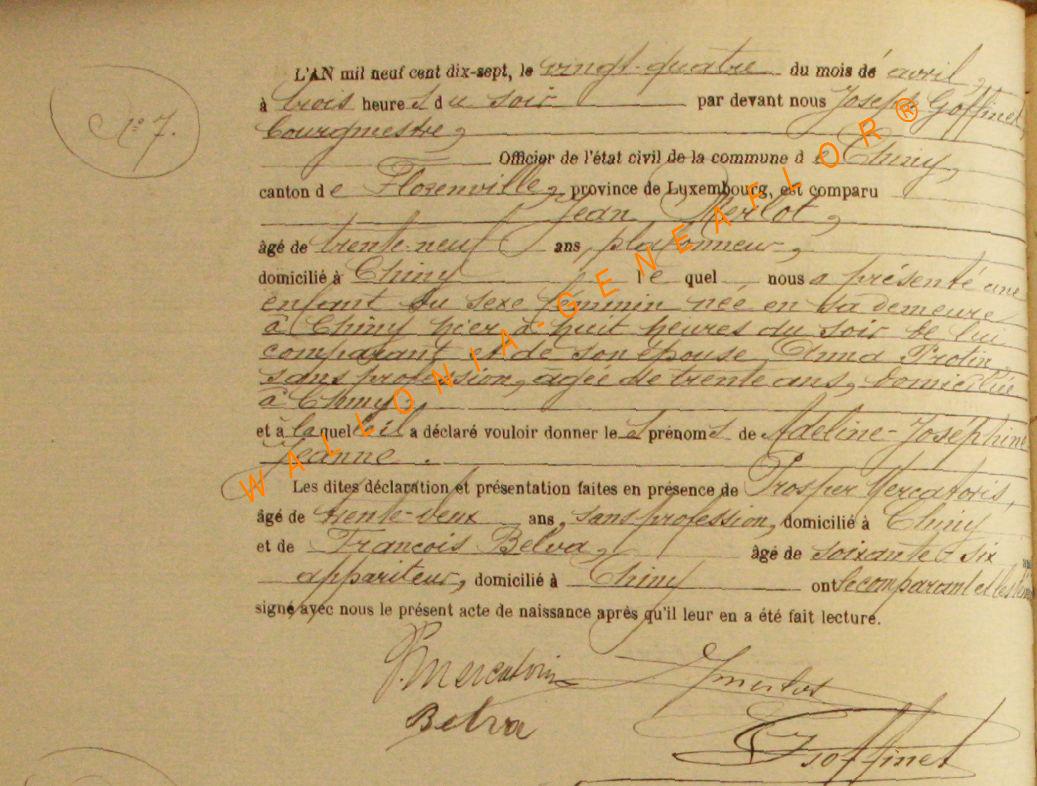 N° 7.
L'AN mil neuf cent dix-sept, le vingt-quatre du mois de avril,
à trois heures du soir par devant nous Joseph Goffinet,
bourgmestre,
Officier de l'état civil de la commune de Chiny,
canton de Florenville, province de Luxembourg, est comparu
Jean Merlot,
âgé de trente-neuf ans, plafonneur,
domicilié à Chiny lequel nous a présenté une
enfant du sexe féminin née en sa demeure
à Chiny hier à huit heures du soir de lui
comparant et de son épouse, Anna Protin,
sans profession, âgée de trente ans, domiciliée
à Chiny.
et à laquelle il a déclaré vouloir donner les prénoms de Adeline-Joséphine
Jeanne.
Les dites déclaration et présentation faites en présence de Prosper Mercatoris,
âgé de trente-deux ans, sans profession, domicilié à Chiny
et de François Belva, âgé de soixante-six
appariteur, domicilié à Chiny ont le comparant et les
signé avec nous le présent acte de naissance après qu'il leur en a été fait lecture.
P. Mercatoris
Belva
Goffinet
WALLONIA-GENEAFLOR®